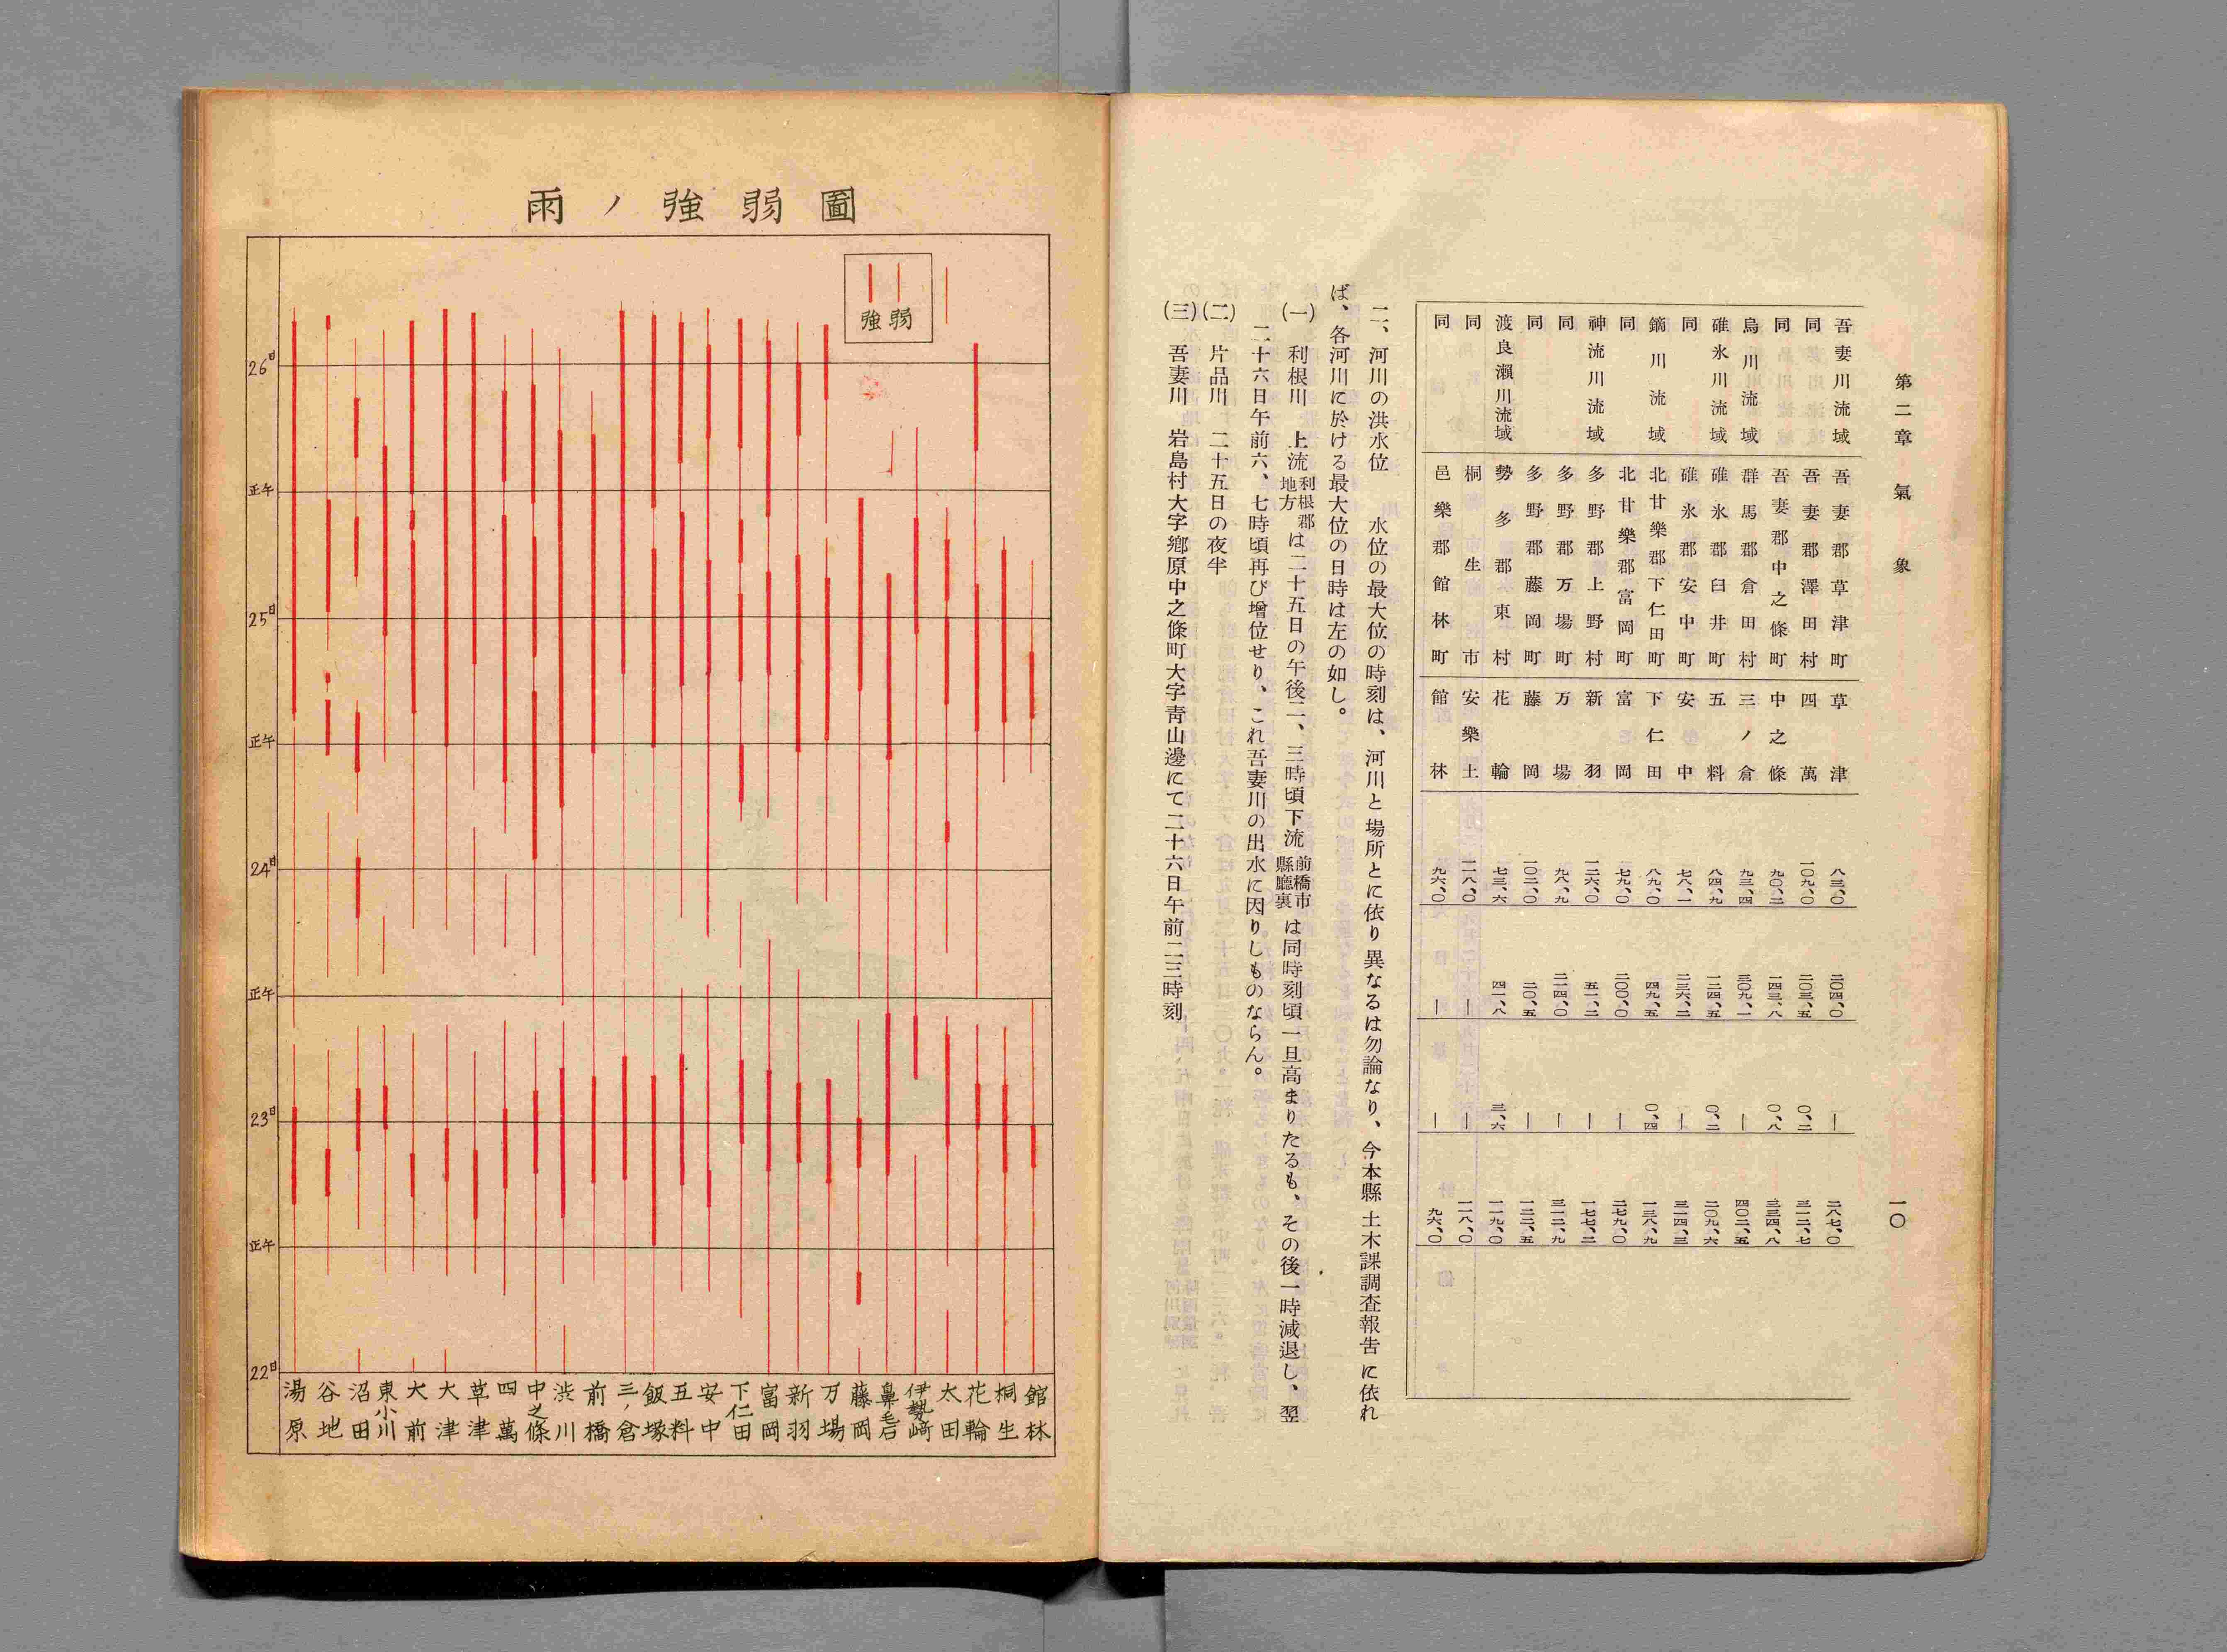 第二章　氣象
一〇
吾妻川流域　吾妻郡草津町　草津　八三、〇　二〇四、〇　―　二八七、〇
同　吾妻郡澤田村　四萬　一〇九、〇　二〇三、五　〇、二　三一二、七
同　吾妻郡中之條町　中之條　九〇、二　一四三、八　〇、八　三三四、八
烏川流域　群馬郡倉田村　三ノ倉　九三、四　三〇九、一　―　四〇二、五
碓氷川流域　碓氷郡臼井町　五料　八四、九　一二四、五　〇、二　二〇九、六
同　碓氷郡安中町　安中　七八、一　二三六、二　―　三一四、三
鏑川流域　北甘樂郡下仁田町　下仁田　八九、〇　四九、五　〇、四　一三八、九
同　北甘樂郡富岡町　富岡　七九、〇　二〇〇、〇　―　二七九、〇
神流川流域　多野郡上野村　新羽　一二六、〇　五一、二　―　一七七、二
同　多野郡万場町　万場　九八、九　二一四、〇　―　三一二、九
同　多野郡藤岡町　藤岡　一〇二、〇　二〇、五　―　一二二、五
渡良瀬川流域　勢多郡東村　花輪　七三、六　四一、八　三、六　一一九、〇
同　桐生市　安樂土　一一八、〇　―　―　一一八、〇
同　邑樂郡館林町　館林　九六、〇　―　―　九六、〇
二、河川の洪水位　水位の最大位の時刻は、河川と場所とに依り異なるは勿論なり、今本縣土木課調査報告に依れ
ば、各河川に於ける最大位の日時は左の如し。
(一)　利根川　上流利根郡地方は二十五日の午後二、三時頃下流前橋市縣廳裏は同時刻頃一旦高まりたるも、その後一時減退し、翌
二十六日午前六、七時頃再び增位せり、これ吾妻川の出水に因りしものならん。
(二)　片品川　二十五日の夜半
(三)　吾妻川　岩島村大字鄕原中之條町大字靑山邊にて二十六日午前二三時刻
雨ノ強弱圖
強　弱
26日
正午
25日
正午
24日
正午
23日
正午
22日
湯原　谷地　沼田　東小川　大前　大津　草津　四萬　中之條　渋川　前橋　三ノ倉　飯塚　五料　安中　下仁田　富岡　新羽　万場　藤岡　鼻毛石　伊勢﨑　太田　花輪　桐生　館林